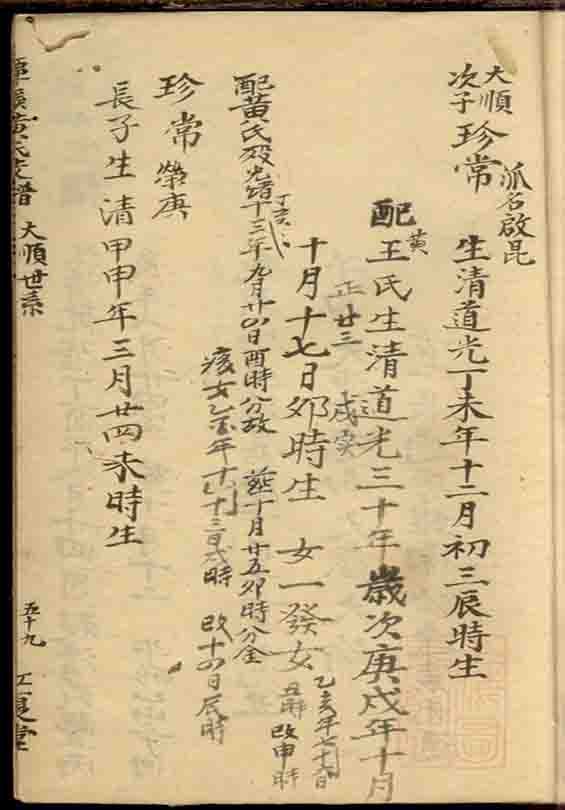 大順
次子珍常
派名啟昆
生清道光丁未年十二月初三辰時生
配王氏生清道光三十年歲次庚戌年十月
黃
正廿三
十月十七日卯時生 女一發女
乙亥年七月十六日
丑時 改申時
丁亥
配黃氏歿光緒十三年九月廿四日酉時分故 葬十月廿五卯時分金
時 改十四日辰時
珍常
長子生清甲申年三月廿四未時生
黃氏支譜 大順世系
五十九
堂